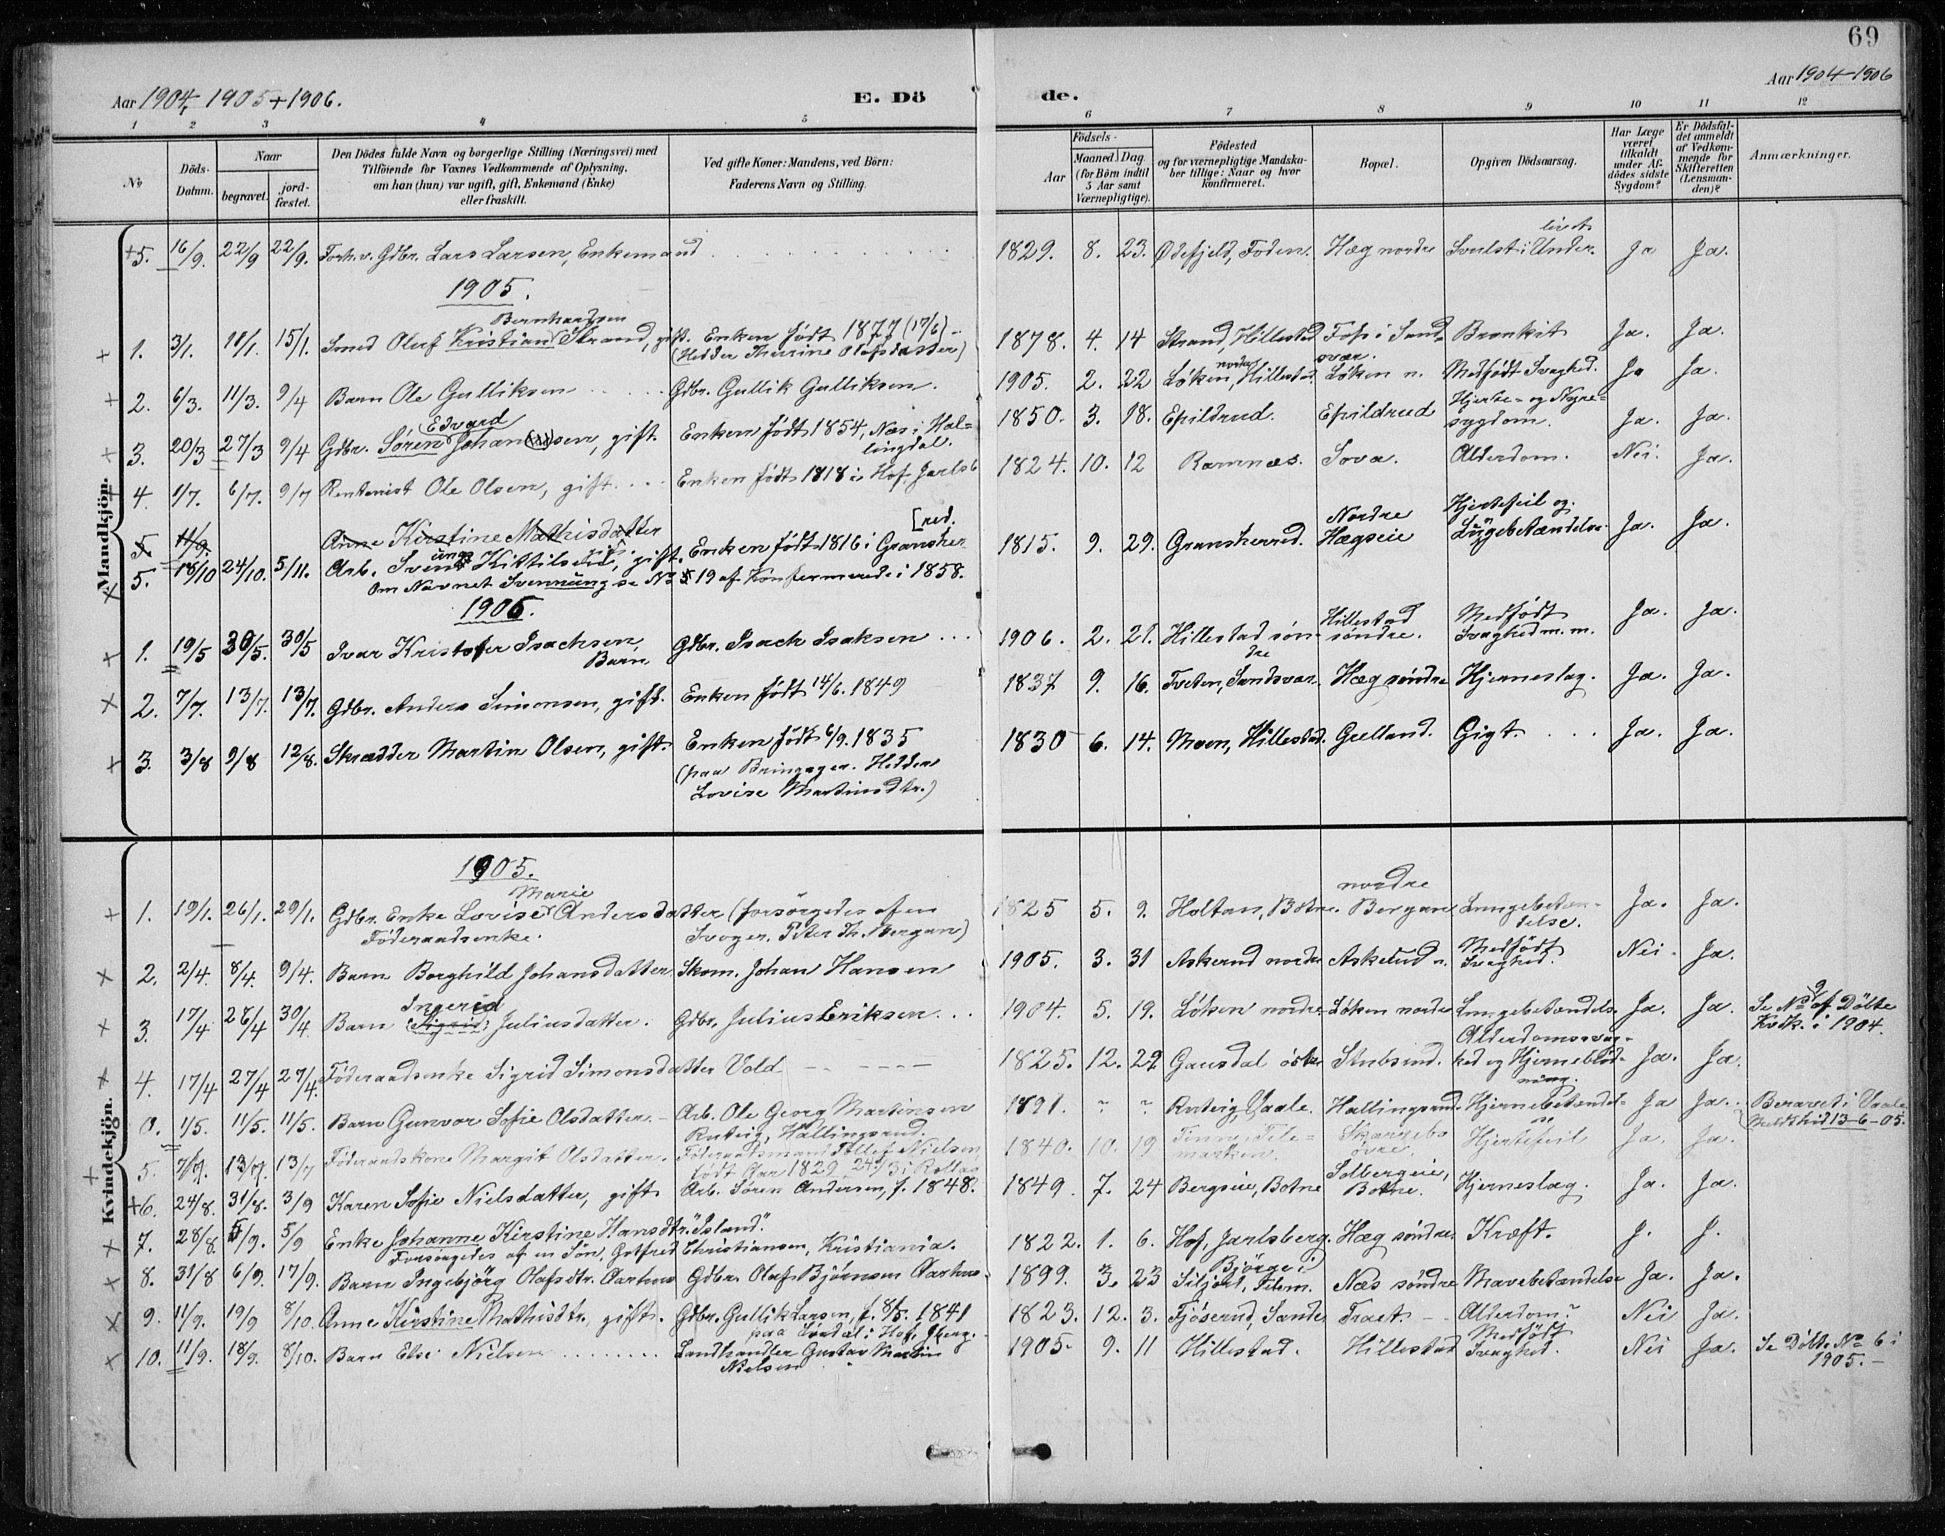 69
Aar 1904, 1905 + 1906.
E. Dö de.
Aar 1904-1906
1 2 3 4 5 6 7 8 9 10 11 12
No
Döds-Datum.
Naar
begravet.
jord-fæstet.
Den Dödes fulde Navn og borgerlige Stilling (Næringsvei) med
Tilföiende for Voxnes Vedkommende af Oplysning,
om han (hun) var ugift, gift, Enkemand (Enke)
eller fraskilt.
Ved gifte Koner: Mandens, ved Börn:
Faderens Navn og Stilling.
Födsels-
Aar
Maaned. Dag.
(for Börn indtil
5 Aar samt
Værnepligtige).
Födested
og for værnepligtige Mandska-
ber tillige: Naar og hvor
konfirmeret.
Bopæl.
Opgiven Dödsaarsag.
Har Læge
været
tilkaldt
under Af-
dödes sidste
Sygdom?
Er Dödsfal-
det anmeldt
af Vedkom-
mende for
Skifteretten
(Lensman-
den)?
Anmærkninger.
Mandkjön.
+5. 16/9. 22/9 22/9. Forh.v. Gdbr. Lars Larsen, Enkemand 1829. 8. 23. Ødefjeld, Foden. Hæg nordre Svulst i Under- livet Ja Ja.
1905.
+ 1. 3/1. 11/1. 15/1. Smed Oluf Kristian Bernhardsen Strand, gift. Enken født 1877 (17/6) 1878. 4. 14 Strand, Hillestad Bronkit Ja. Ja.
+ 2. 6/3. 11/3. 9/4 Barn Ole Gulliksen Gdbr. Gullik Gulliksen. 1905. 2. 22 Løken nordre, Hillestad Løken n. Medfødt Svaghed. Ja Ja.
+ 3. 20/3 27/3 9/4 Gdbr. Søren Edvard Johansen, gift. Enken født 1854, Næs i Hal-
lingdal. 1850. 3. 18. Epildrud. Epildrud Hjerte- og Nyre-
sygdom. Ja. Ja.
4. 1/7. 6/7. 9/7 Rentenist Ole Olsen, gift. Enken født 1818 i Hof. Jarlsb 1824. 10. 12 Ramnæs. Sova. Alderdom. Nei. Ja.
5 11/9. Anne Kirstine Mathisdatter
5. 18/10 24/10. 5/11. Arb. gift. Enken født 1816 i Gransher-
[red. 1815. 9. 29. Gransherred. Nordre
Hægseie Hjertefeil og
Lungebetændelse. Ja. Ja.
Om Navnet Svennüng se No 19 af Konfermerede i 1858.
1906.
+ 1. 19/5 30/5. 30/5 Ivar Kristofer Isachsen,
Barn Gdbr. Isach Isaksen 1906. 2. 21. Hillestad søn-
dre Hillestad
søndre. Medfødt
Svaghed m.m. Ja. Ja.
× 2. 7/7. 13/7. 13/7. Gdbr. Anders Simonsen, gift. Enken født 14/6. 1849 1837 9. 16. Tveten, Sandsvær. Hæg søndre Hjerneslag. Ja. Ja.
+ 3. 3/8 9/8 12/8. Skrædder Martin Olsen, gift. Enken født 6/9. 1835 1830 6. 14. Moen, Hillestad. Grelland. Gigt. Ja. Ja.
(paa Bringager. Hedder
Lovise Martinsdtr.)
Kvindekjön.
1905.
+ 1. 19/1. 26/1. 29/1. Gdbr. Enke Lovise Marie Andersdatter (forsørgedes af en 1825 5. 9. Holtan, Botne. nordre
Bergan Lungebetæn-
delse. Ja. Ja.
Föderaadsenke. Svoger. Peter Th. Bergan)
× 2. 2/4. 8/4. 9/4. Barn Borghild Johansdatter Skom. Johan Hansen 1905. 3. 31 Askerud nordre Askerud n. Medfødt
Svaghed. Nei. Ja.
× 3. 17/4 26/4 30/4 Barn Ingerid Juliusdatter. Gdbr. Julius Eriksen 1904. 5. 19. Løken nordre Løken nordre Ja. Ja. Se No 9 af Döbte
Kvk. i 1904.
× 4. 17/4 27/4 27/4. Föderaadsenke Sigrid Simonsdatter Vold 1825. 12. 29. Gausdal östre Stubsrud. Alderdomssvag-
hed og Hjerneblöd-
ning. Ja. Ja.
0. 1/5. 11/5. 11/5. Barn Gunvor Sofie Olsdatter. Arb. Ole Georg Martinsen
Rutvig, Hallingsrud. 1891. " " Rutvig, Vaale. Hallingsrud Ja Ja. 13-6-05.
+ 5. 7/7. 13/7. 13/7 Föderaadskone Margit Olsdatter. Föderaadsmand Nielsen,
født Aar 1829 1840. 10. 19 Tinn, Tele-
marken. Hjertefeil Ja. Ja.
+6. 24/8. 31/8. 3/9 Karen Sofie Nielsdatter, gift Arb. Søren Andersen, f. 1848. 1849. 7. 24 Bergseie, Botne Solbergeie,
Botne. Hjerneslag. Ja. Ja.
+ 7. 28/8. 5/9. 5/9 Enke Johanne Kirstine Hansdtr. "Island". 1822. 1. 6. Hof, Jarlsberg. Hæg søndre. Kræft. J. J.
Forsørgedes af en Søn, Gotfred Christiansen, Kristiania.
+ 8. 31/8 6/9. 17/9. Barn Ingebjörg Olafsdtr. Aarhus Gdbr. Olaf Bjørnsen Aarhus. 1899. 3. 23 Bjørge i
Siljord, Telem. Næs søndre Mavebetændelse Ja. Ja.
× 9. 11/9. 19/9 8/10. Anne Kirstine Mathisdtr. gift. Gdbr. Gullik Larsen, f. 8/5. 1841 1823. 12. 3. Fjöserud, Sande Traet Alderdom. Nei Ja.
+ 10. 11/9. 18/9. 8/10. Barn Else Nielsen Landhandler Gustav Martin
Nielsen 1905. 9. 11 Hillestad. Hillestad Medfødt
Svaghed. Nei Ja. Se Döbte No 6 i
1905.